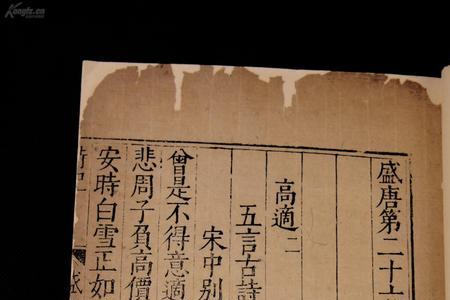 盛唐第二十
高適二
五言古詩
宋中別
曾是不得意適
悲周子負高價
安時白雪正如
Kongfz.com